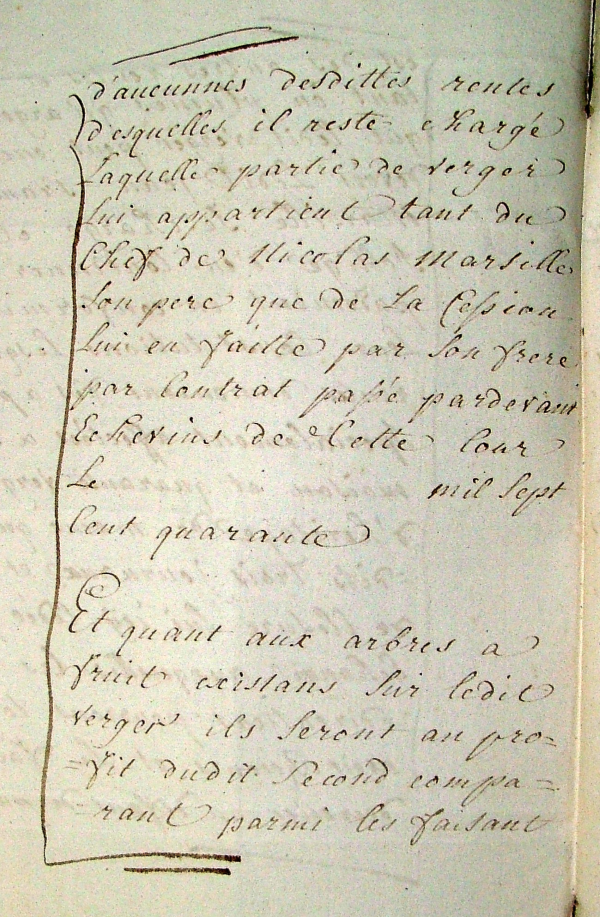 d'aucunnes desdittes rentes
desquelles il reste chargé
Laquelle partie de verger
lui appartient tant du
Chef de Nicolas Marsille
son pere que de La Cession
lui en faitte par son frere
par Contrat passé pardevant
Echevins de Cette Cour
Le mil sept
Cent quarante
Et quant aux arbres a
fruit existans sur ledit
verger ils seront au pro=
=fit dudit second compa=
=rant parmi les faisant